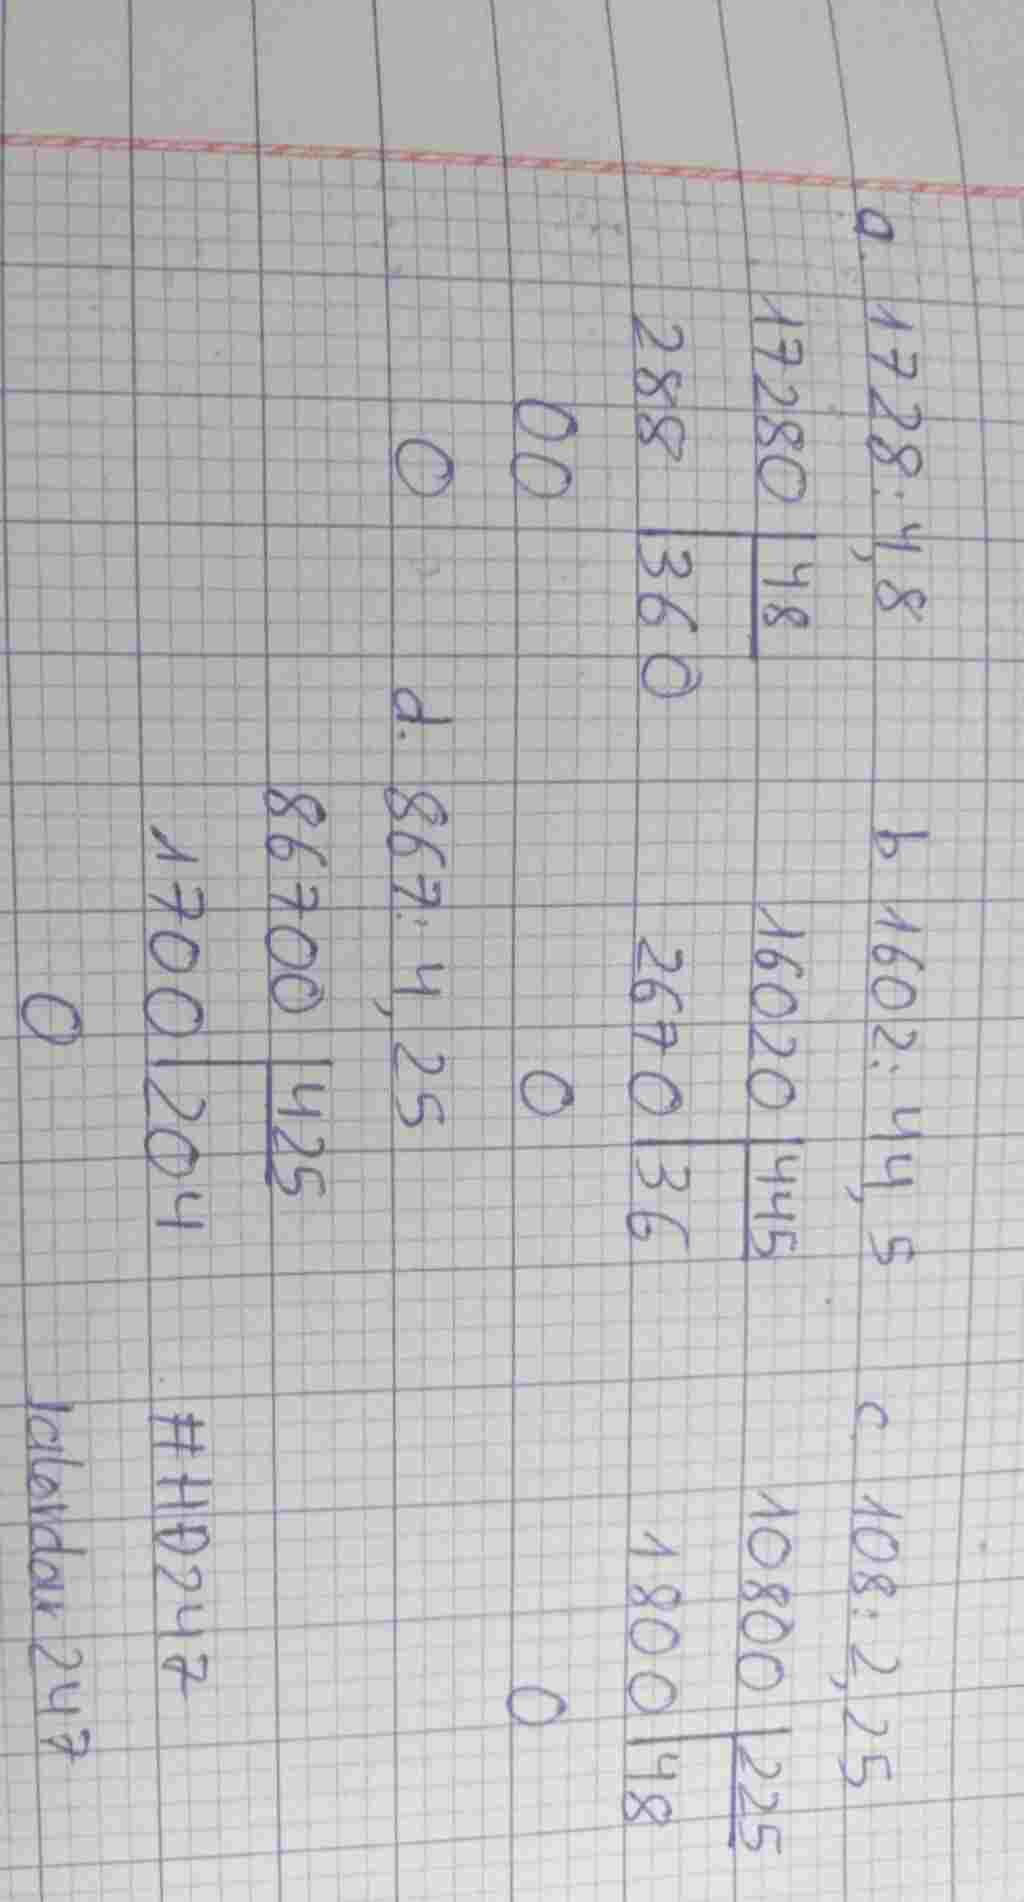 a. 1728:4,8 b 1602:44,5 c 108:2,25
17280 48 16020 445 10800 225
288 360 2670 36 1800 48
00 0 0
0 d. 867:4,25
86700 425
1700 204 #HĐ247
0 Jalandar247